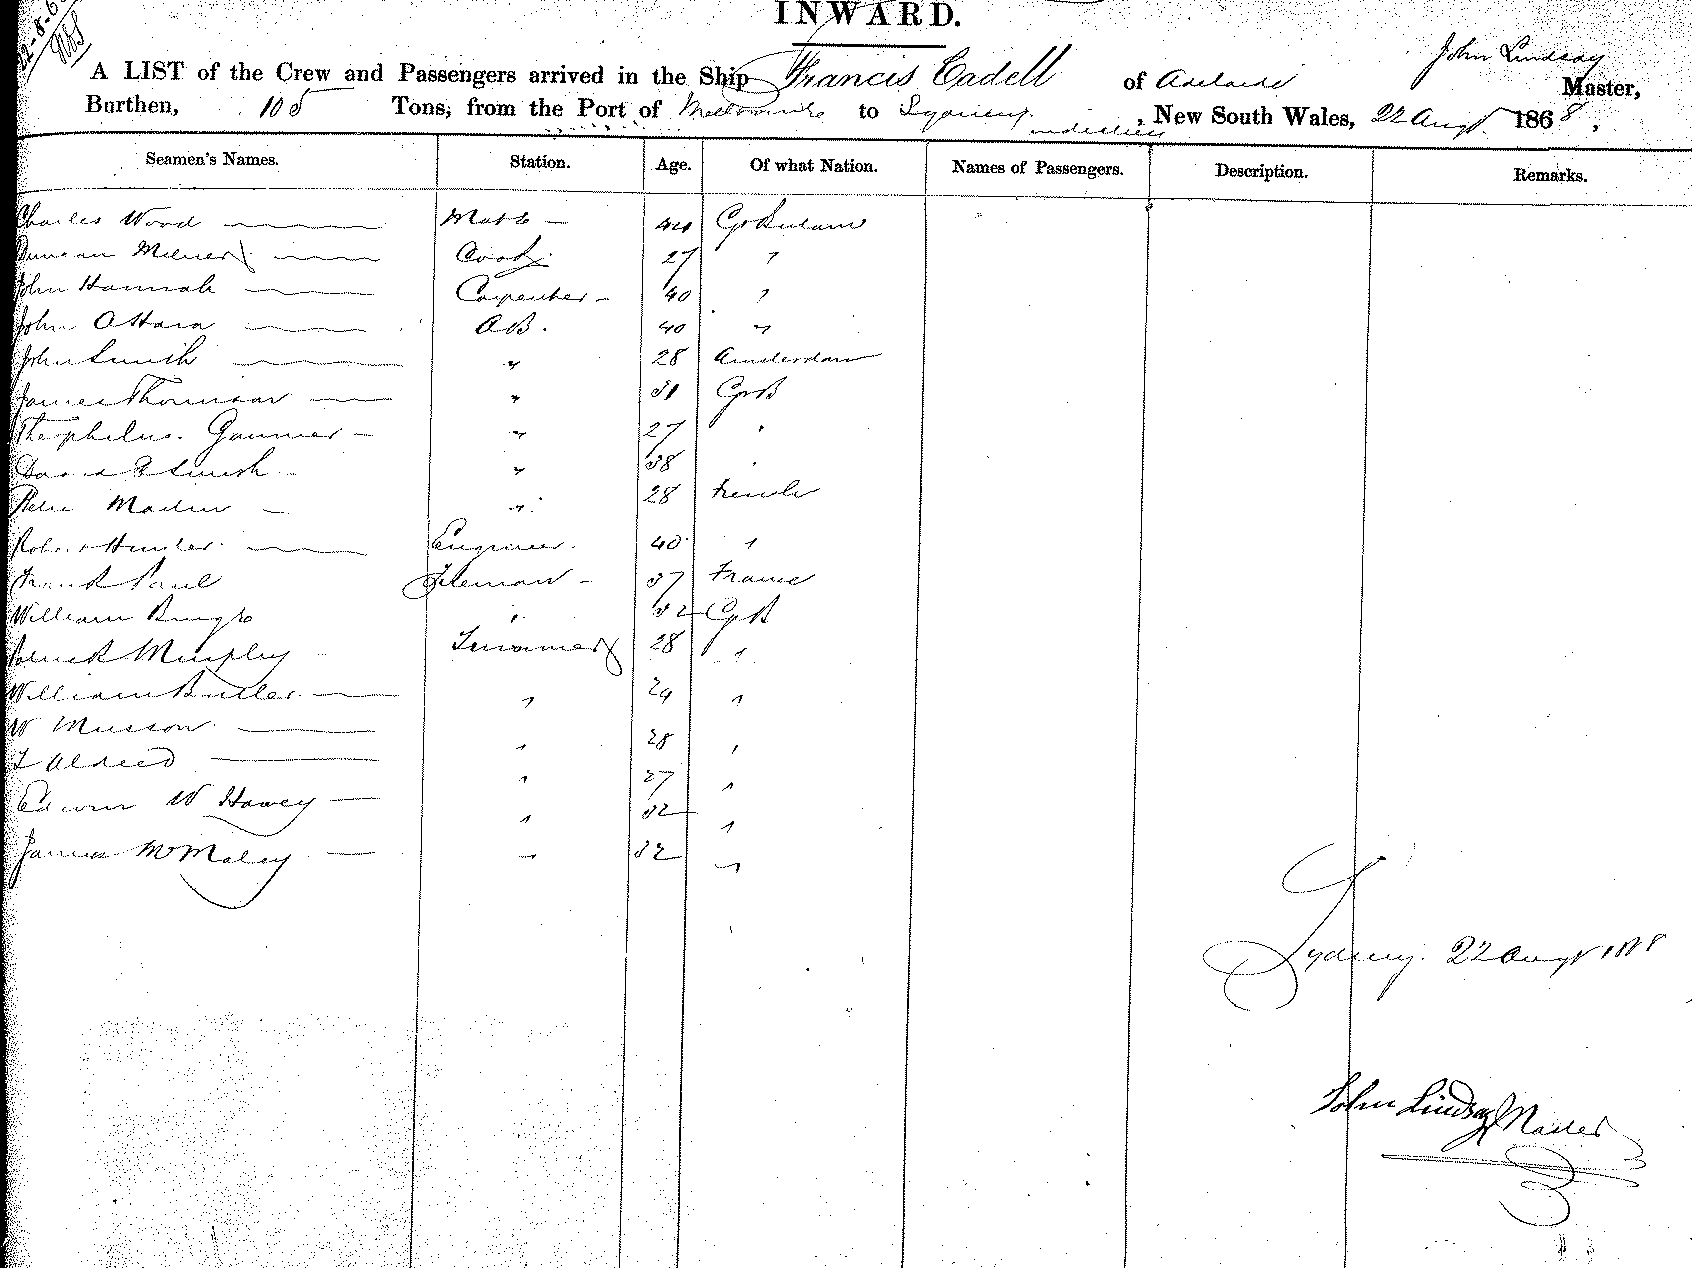 INWARD.
A LIST of the Crew and Passengers arrived in the Ship Francis Cadell of Adelaide John Lindsay Master,
Burthen, 105 Tons, from the Port of Melbourne to Sydney, New South Wales, 22 Augt 1868,
Seamen's Names. Station. Age. Of what Nation. Names of Passengers. Description. Remarks.
Charles Wood Mate 44 Gt Britain
Duncan Cook 27 "
John Hannah Carpenter 40 "
John OHara AB. 40 "
John Smith " 28 Amsterdam
James Thomson " 31 Gr B
Theophilus " 27 "
David Smith " 38 "
" 28 French
Robert Hunter Engineer. 40 "
Frank Paul Fireman 37 France
William 32 Gr B
Patrick Murphy Trimmer 28 "
William Butler " 24 "
W Musson " 28 "
" 27 "
Edwin W " 32 "
James " 32 "
Sydney. 22 Augt 1868
John Lindsay Master